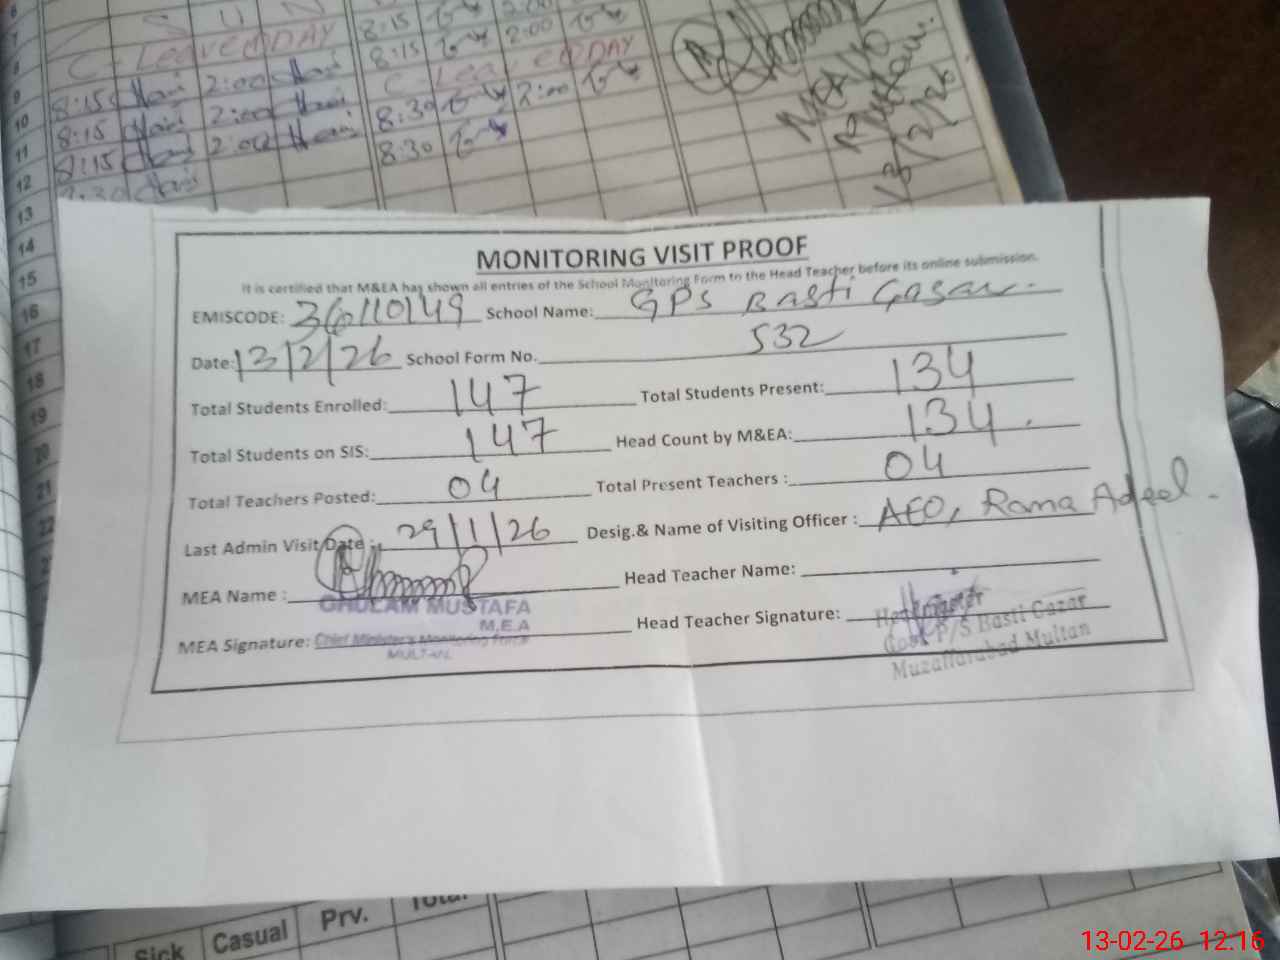 6
7
8
9
10
11
12
13
14
15
16
17
18
19
20
21
22
SUN
C-Leave DAY
8:15 2:00
8:15 2:00
8:15 2:00
8:15 2:00
8:15 2:00
C Leave DAY
8:30 2:00
8:30
MEA
13/2/26
MONITORING VISIT PROOF
It is certified that M&EA has shown all entries of the School Monitoring Form to the Head Teacher before its online submission.
EMISCODE: 36110149 School Name: GPS Basti Gasar.
Date: 13/2/26 School Form No. 532
Total Students Enrolled: 147 Total Students Present: 134
Total Students on SIS: 147 Head Count by M&EA: 134.
Total Teachers Posted: 04 Total Present Teachers : 04
Last Admin Visit Date : 29/1/26 Desig.& Name of Visiting Officer : AEO, Rana Adeel.
MEA Name : Head Teacher Name:
GHULAM MUSTAFA
M.E.A
MEA Signature: Chief Minister's Monitoring Force Head Teacher Signature:
MULTAN.
Govt P/S Basti Gazar
Muzaffarabad Multan
Sick Casual Prv. Total
13-02-26 12:16